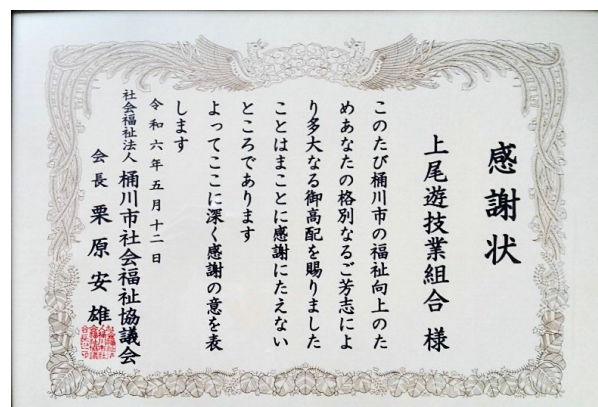 感謝状
上尾遊技業組合 様
このたび桶川市の福祉向上のた
めあなたの格別なるご芳志によ
り多大なる御高配を賜りました
ことはまことに感謝にたえない
ところであります
よってここに深く感謝の意を表
します
令和六年五月十二日
社会福祉法人 桶川市社会福祉協議会
会長 栗原安雄